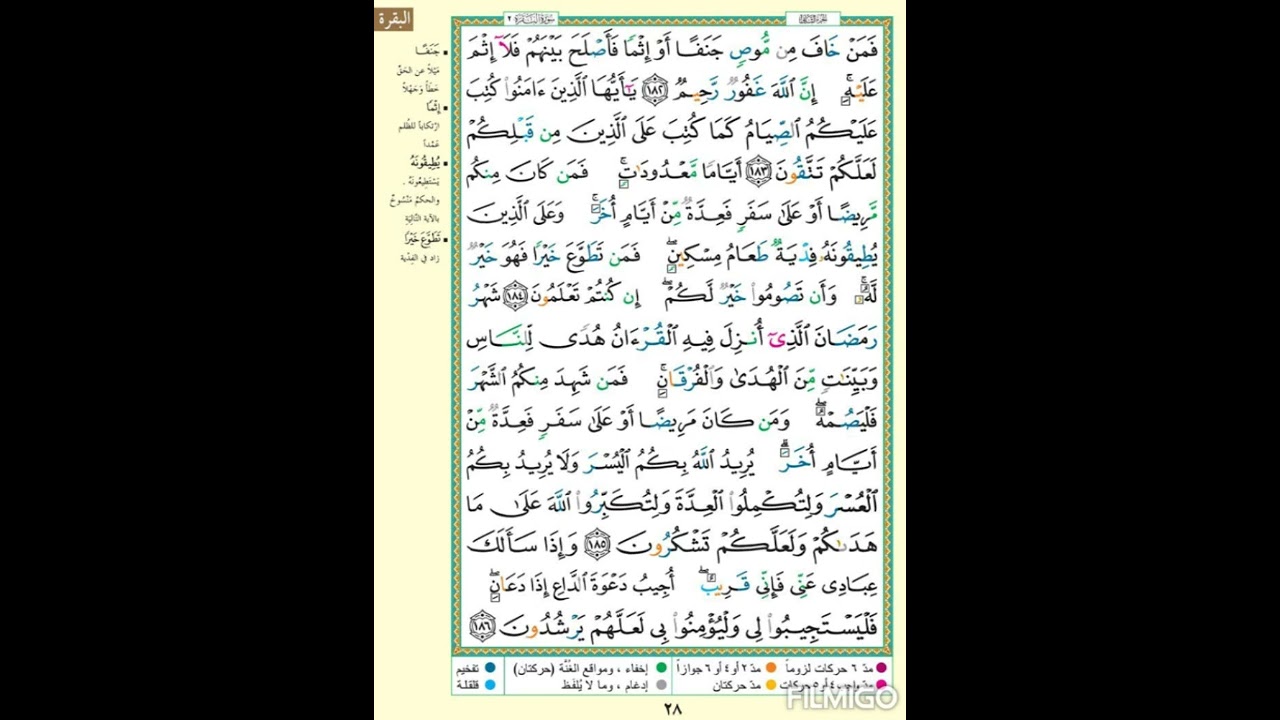 البقرة
سورة البقرة ٢
فَمَنْ خَافَ مِن مُّوصٍ جَنَفًا أَوْ إِثْمًا فَأَصْلَحَ بَيْنَهُمْ فَلَآ إِثْمَ
عَلَيْهِ ۚ إِنَّ ٱللَّهَ غَفُورٌ رَّحِيمٌ ١٨٢ يَـٰٓأَيُّهَا ٱلَّذِينَ ءَامَنُوا۟ كُتِبَ
عَلَيْكُمُ ٱلصِّيَامُ كَمَا كُتِبَ عَلَى ٱلَّذِينَ مِن قَبْلِكُمْ
لَعَلَّكُمْ تَتَّقُونَ ١٨٣ أَيَّامًا مَّعْدُودَٰتٍ ۚ فَمَن كَانَ مِنكُم
مَّرِيضًا أَوْ عَلَىٰ سَفَرٍ فَعِدَّةٌ مِّنْ أَيَّامٍ أُخَرَ ۚ وَعَلَى ٱلَّذِينَ
يُطِيقُونَهُۥ فِدْيَةٌ طَعَامُ مِسْكِينٍ ۖ فَمَن تَطَوَّعَ خَيْرًا فَهُوَ خَيْرٌ
لَّهُۥ ۚ وَأَن تَصُومُوا۟ خَيْرٌ لَّكُمْ ۖ إِن كُنتُمْ تَعْلَمُونَ ١٨٤ شَهْرُ
رَمَضَانَ ٱلَّذِىٓ أُنزِلَ فِيهِ ٱلْقُرْءَانُ هُدًى لِّلنَّاسِ
وَبَيِّنَـٰتٍ مِّنَ ٱلْهُدَىٰ وَٱلْفُرْقَانِ ۚ فَمَن شَهِدَ مِنكُمُ ٱلشَّهْرَ
فَلْيَصُمْهُ ۖ وَمَن كَانَ مَرِيضًا أَوْ عَلَىٰ سَفَرٍ فَعِدَّةٌ مِّنْ
أَيَّامٍ أُخَرَ ۗ يُرِيدُ ٱللَّهُ بِكُمُ ٱلْيُسْرَ وَلَا يُرِيدُ بِكُمُ
ٱلْعُسْرَ وَلِتُكْمِلُوا۟ ٱلْعِدَّةَ وَلِتُكَبِّرُوا۟ ٱللَّهَ عَلَىٰ مَا
هَدَىٰكُمْ وَلَعَلَّكُمْ تَشْكُرُونَ ١٨٥ وَإِذَا سَأَلَكَ
عِبَادِى عَنِّى فَإِنِّى قَرِيبٌ ۖ أُجِيبُ دَعْوَةَ ٱلدَّاعِ إِذَا دَعَانِ ۖ
فَلْيَسْتَجِيبُوا۟ لِى وَلْيُؤْمِنُوا۟ بِى لَعَلَّهُمْ يَرْشُدُونَ ١٨٦
جَنَفًا
مَيْلاً عن الحقّ
خطأً وجَهْلاً
إِثْمًا
ارتكاباً للظُّلم
عَمْداً
يُطِيقُونَهُ
يَسْتَطِيعُونَهُ .
والحكمُ مَنْسُوخٌ
بالآية التالية
تَطَوَّعَ خَيْرًا
زاد في الفِدْية
مدّ ٦ حركات لزوماً مدّ ٢ أو ٤ أو ٦ جوازاً إخفاء ، ومواقع الغُنَّة (حركتان) تفخيم
مدّ واجب ٤ أو ٥ حركات مدّ حركتان إدغام ، وما لا يُلفَظ قلقلة
٢٨
FILMIGO